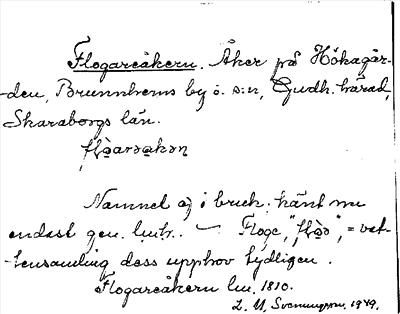 Flogareåkern. Åker på Hökagår-
den, Brunnhems by o. s:n, Gudh. härad,
Skaraborgs län.
Namnet ej i bruk; känt nu
endast gen. lmtr. — Floge, "flòə", = vat-
tensamling dess upphov tydligen.
Flogareåkern lm. 1810.
L. M. Svenungsson. 1949.